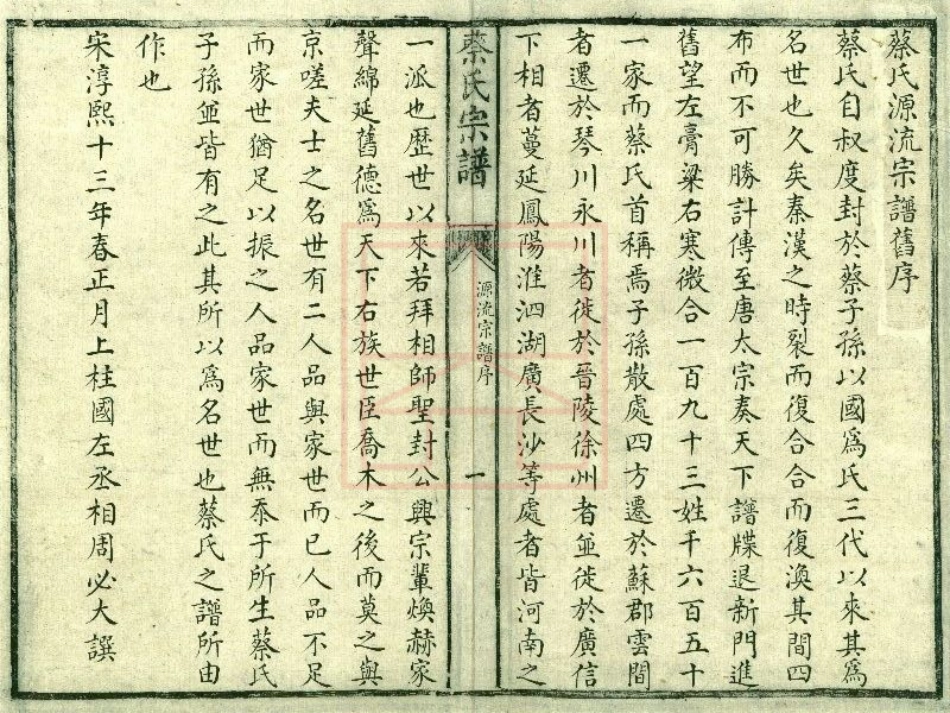 蔡氏源流宗譜舊序
蔡氏自叔度封於蔡子孫以國爲氏三代以來其爲
名世也久矣秦漢之時裂而復合合而復渙其間四
布而不可勝計傳至唐太宗奏天下譜牒退新門進
舊望左膏粱右寒微合一百九十三姓千六百五十
一家而蔡氏首稱焉子孫散處四方遷於蘇郡雲間
者遷於琴川永川者徙於晉陵徐州者並徙於廣信
下相者蔓延鳳陽淮泗湖廣長沙等處者皆河南之
蔡氏宗譜
源流宗譜序
一
一派也歷世以來若拜相師聖封公興宗輩煥赫家
聲綿延舊德爲天下右族世臣喬木之後而莫之與
京嗟夫士之名世有二人品與家世而已人品不足
而家世猶足以振之人品家世而無忝于所生蔡氏
子孫並皆有之此其所以爲名世也蔡氏之譜所由
作也
宋淳熙十三年春正月上柱國左丞相周必大譔